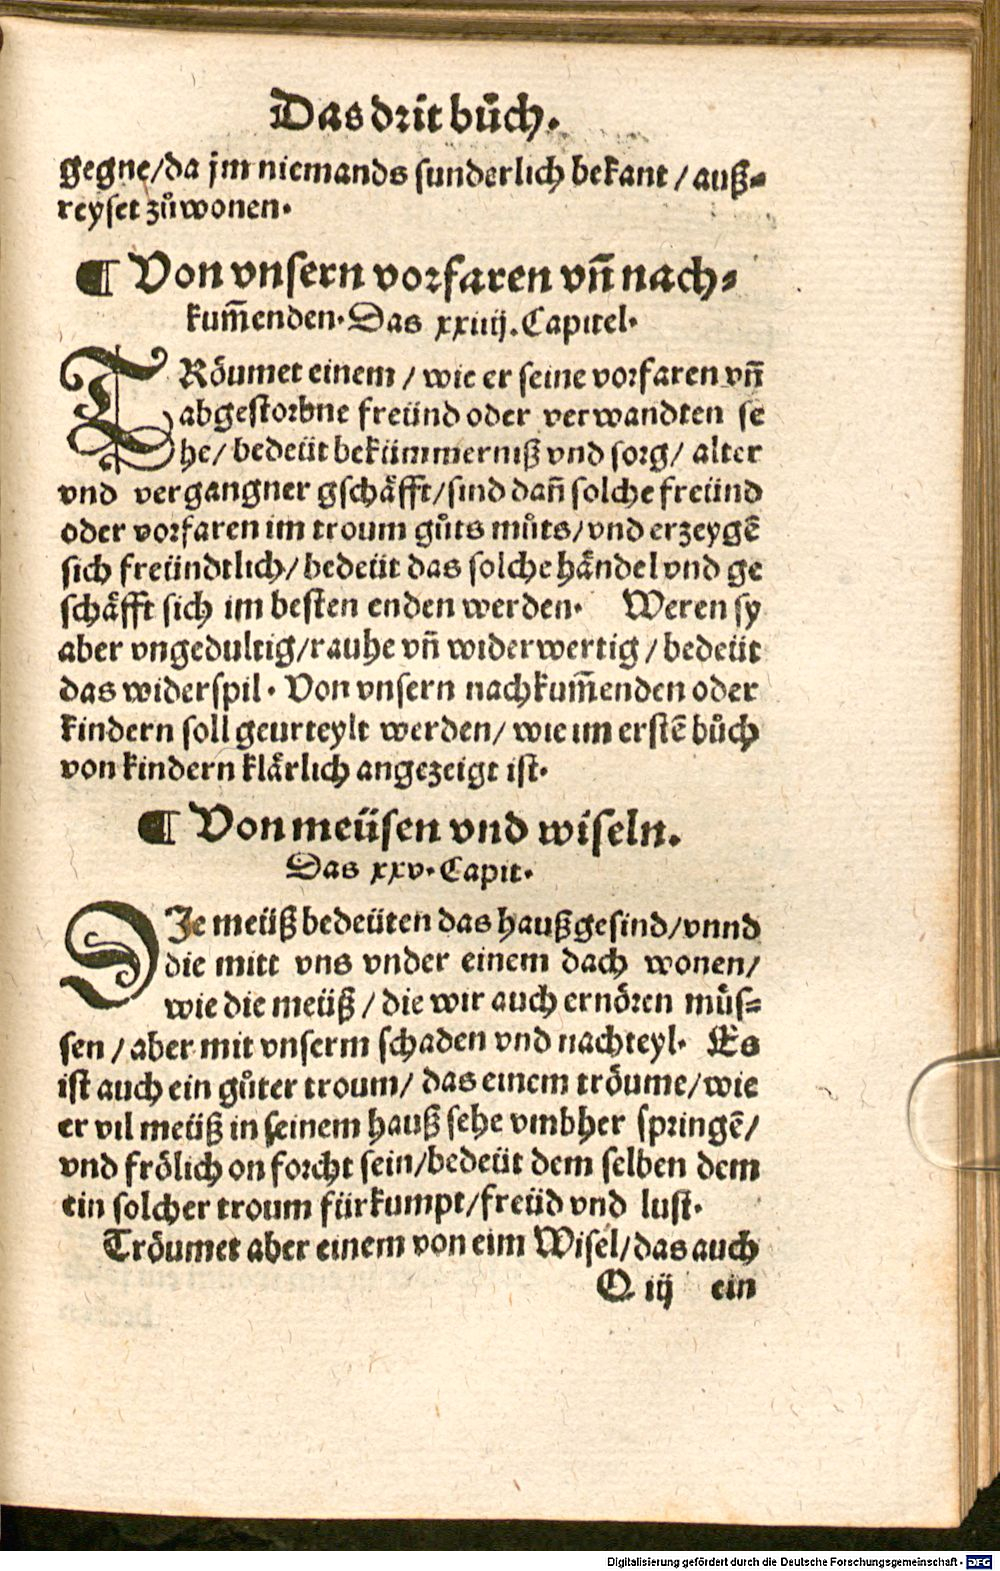 Das drit bůch.
gegne/da jm niemands sunderlich bekant / auß⸗
reyset zůwonen.
¶ Von vnsern vorfaren vn̄ nach⸗
kum̄enden. Das xxiiij. Capitel.
TRöumet einem / wie er seine vorfaren vn̄
abgestorbne freünd oder verwandten se
he/ bedeüt bekümmerniß vnd sorg/ alter
vnd vergangner gschäfft/sind dan̄ solche freünd
oder vorfaren im troum gůts můts/vnd erzeygē
sich freündtlich/ bedeüt das solche händel vnd ge
schäfft sich im besten enden werden. Weren sy
aber vngedultig/rauhe vn̄ widerwertig / bedeüt
das widerspil. Von vnsern nachkum̄enden oder
kindern soll geurteylt werden/ wie im erstē bůch
von kindern klärlich angezeigt ist.
¶ Von meüsen vnd wiseln.
Das xxv. Capit.
DIe meüß bedeüten das haußgesind/vnnd
die mitt vns vnder einem dach wonen/
wie die meüß / die wir auch ernören müs⸗
sen / aber mit vnserm schaden vnd nachteyl. Es
ist auch ein gůter troum/ das einem tröume/wie
er vil meüß in seinem hauß sehe vmbher springē/
vnd frölich on forcht sein/bedeüt dem selben dem
ein solcher troum fürkumpt/freüd vnd lust.
Tröumet aber einem von eim Wisel/das auch
O iij ein
Digitalisierung gefördert durch die Deutsche Forschungsgemeinschaft - DFG